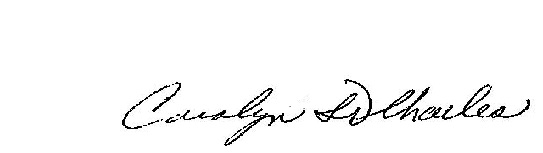 Carolyn D Charles